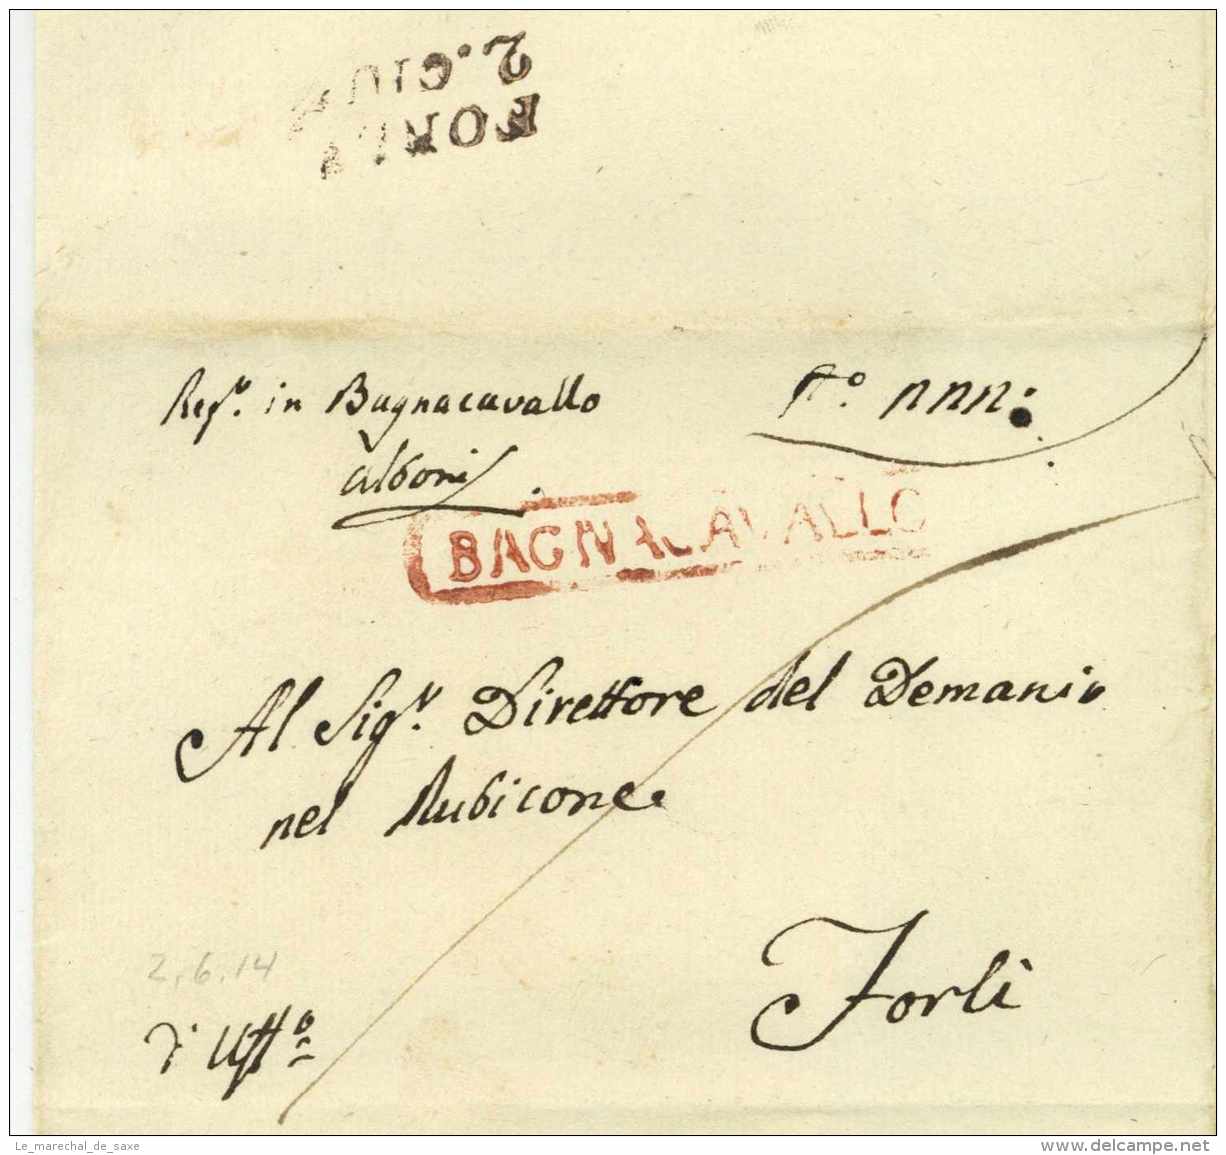 2. GIU
FORLI
Regr. in Bagnacavallo
Alboni
No. nnn:
BAGNACAVALLO
Al Sigr. Direttore del Demanio
nel Rubicone
2.6.14
Forlì
d' Uffo
Le_marechal_de_saxe
www.delcampe.net